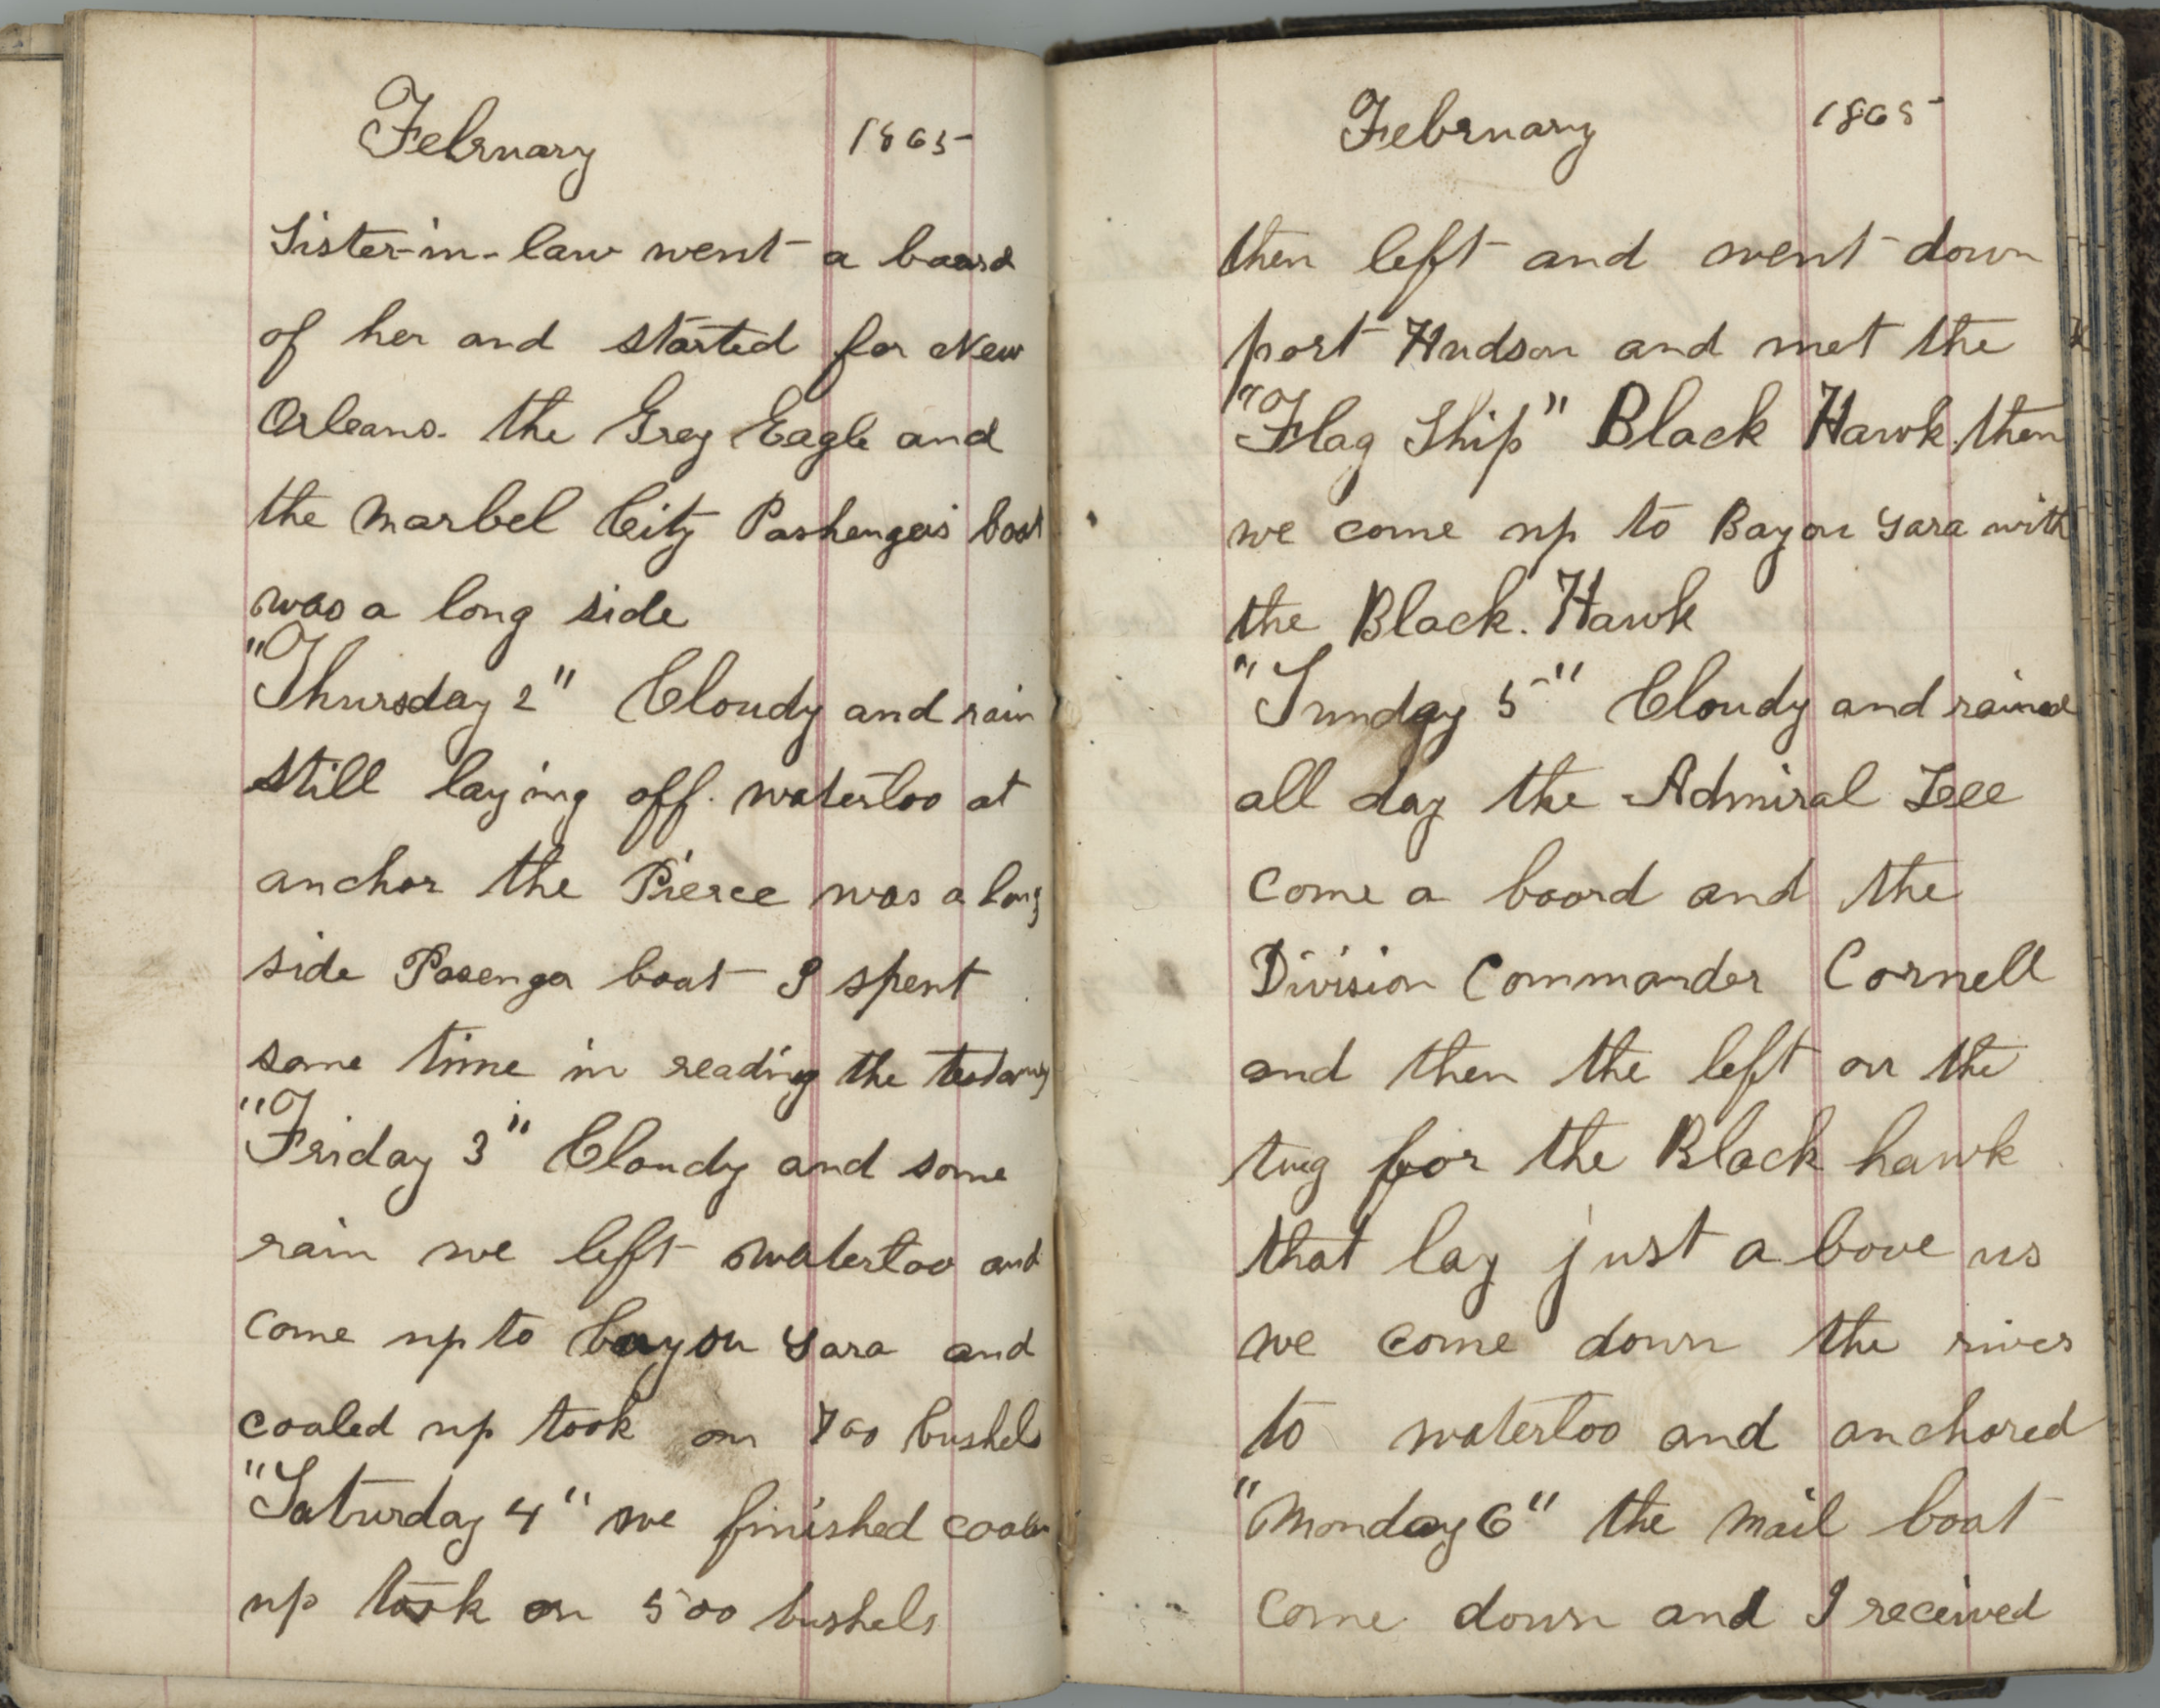 February 1865
Sister-in-law went a board
of her and started for New
Orleans. the Grey Eagle and
the marbel City Pashengers boat
was a long side
"Thursday 2" Cloudy and rain
still laying off. waterloo at
anchor the Pierce was a long
side Pasenga boat I spent
some time in reading the
"Friday 3" Cloudy and some
rain we left waterloo and
come up to bayou Sara and
coaled up took on 700 bushels
"Saturday 4" we finished
up took on 500 bushels
February 1865
then left and went down
port Hudson and met the
"Flag Ship" Black Hawk. then
we come up to Bayou Sara with
the Black. Hawk
"Sunday 5" Cloudy and rained
all day the Admiral Lee
come a board and the
Division Commander Cornell
and then the left on the
tug for the Black hawk
that lay just a bove us
we come down the river
to waterloo and anchored
"Monday 6" the mail boat
come down and I received